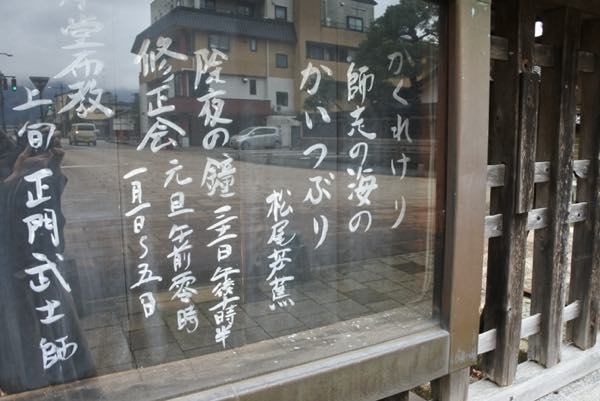 かくれけり
師走の海の
かいつぶり
松尾芭蕉
除夜の鐘 三十一日 午後十一時半
修正会 元旦 午前零時
一月一日～五日
堂布教
上旬 正門武士師